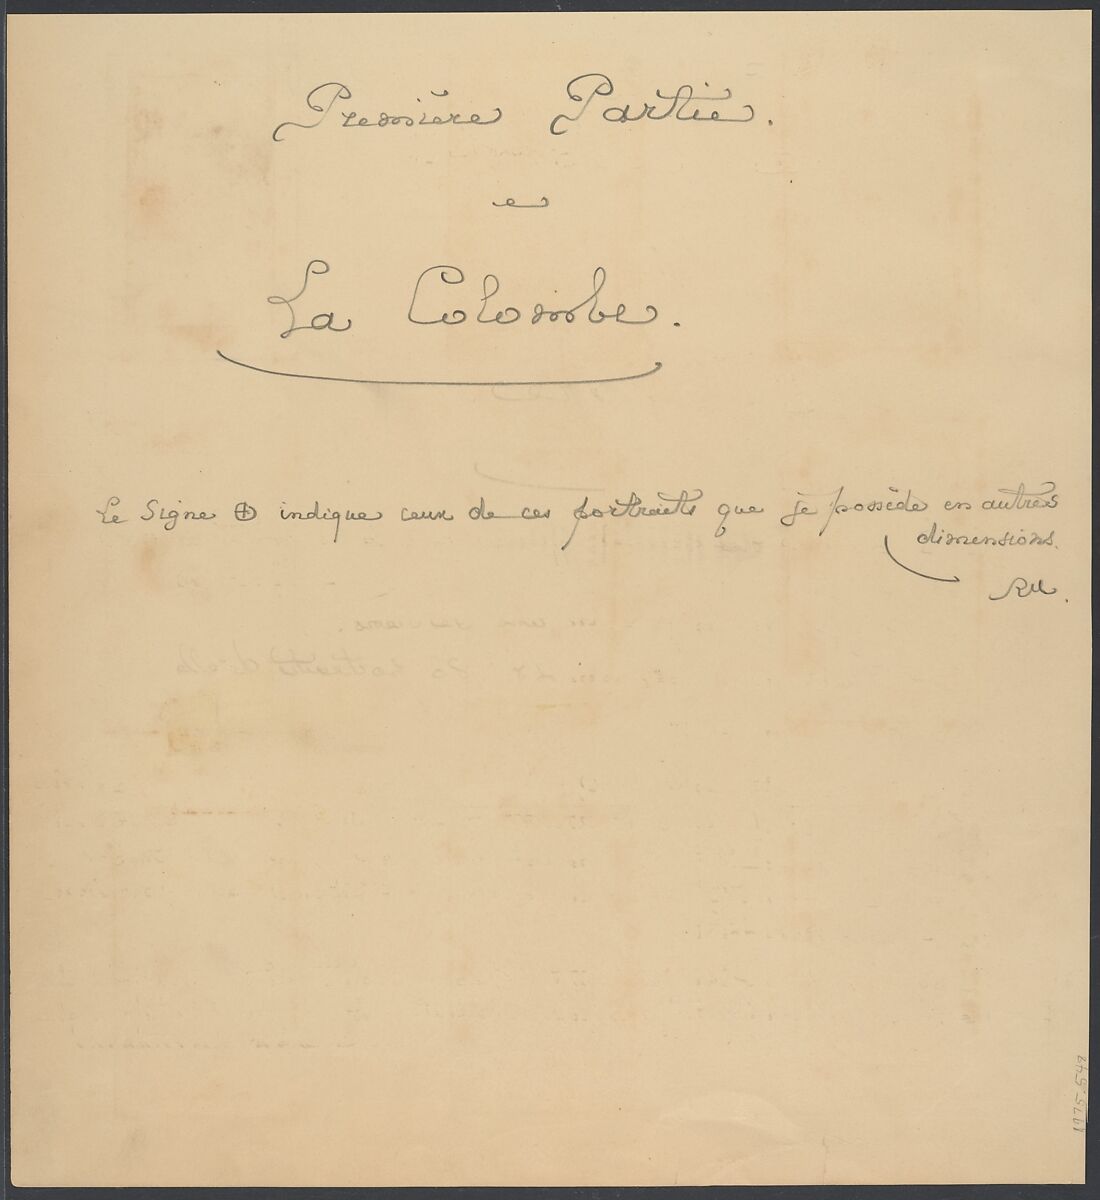 Première Partie.
La Colombe.
Le Signe ⊕ indique ceux de ces portraits que je possède en autres
dimensions.
RM.
1975.548